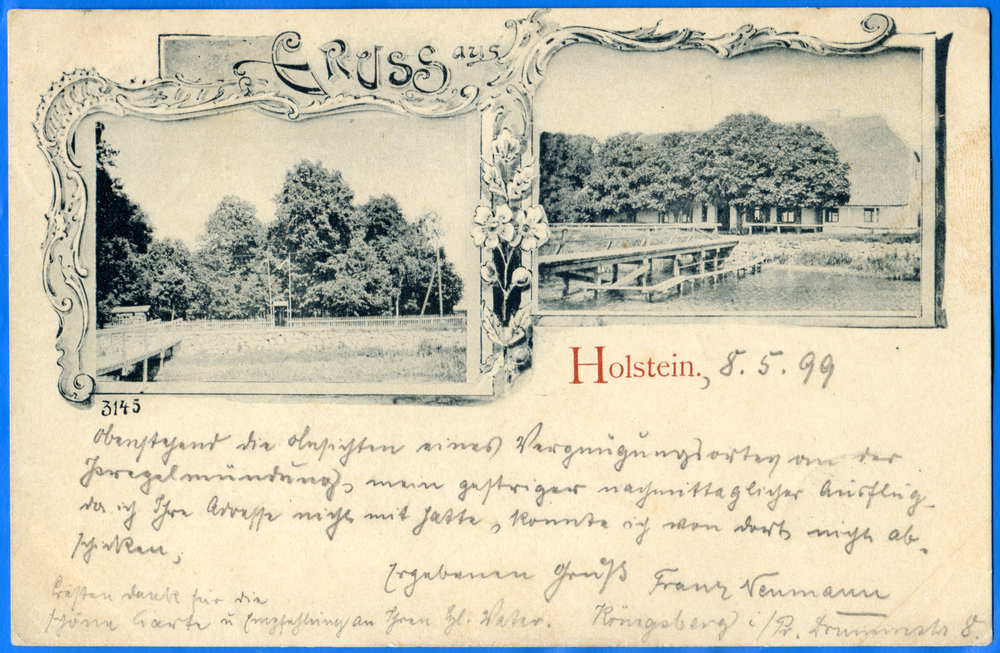 Gruss aus
Holstein., 8. 5. 99
3145
Obenstehend die Ansichten eines Vergnügungsortes an der
Pregelmündung, mein gestriger nachmittaglicher Ausflug.
da ich Ihre Adresse nicht mit hatte, konnte ich von dort nicht ab-
schicken,
Ergebenen Gruß Franz Neumann
Besten Dank für die
schöne Karte u Empfehlung an Ihren Hl. Vater. Königsberg i/Pr. 8.